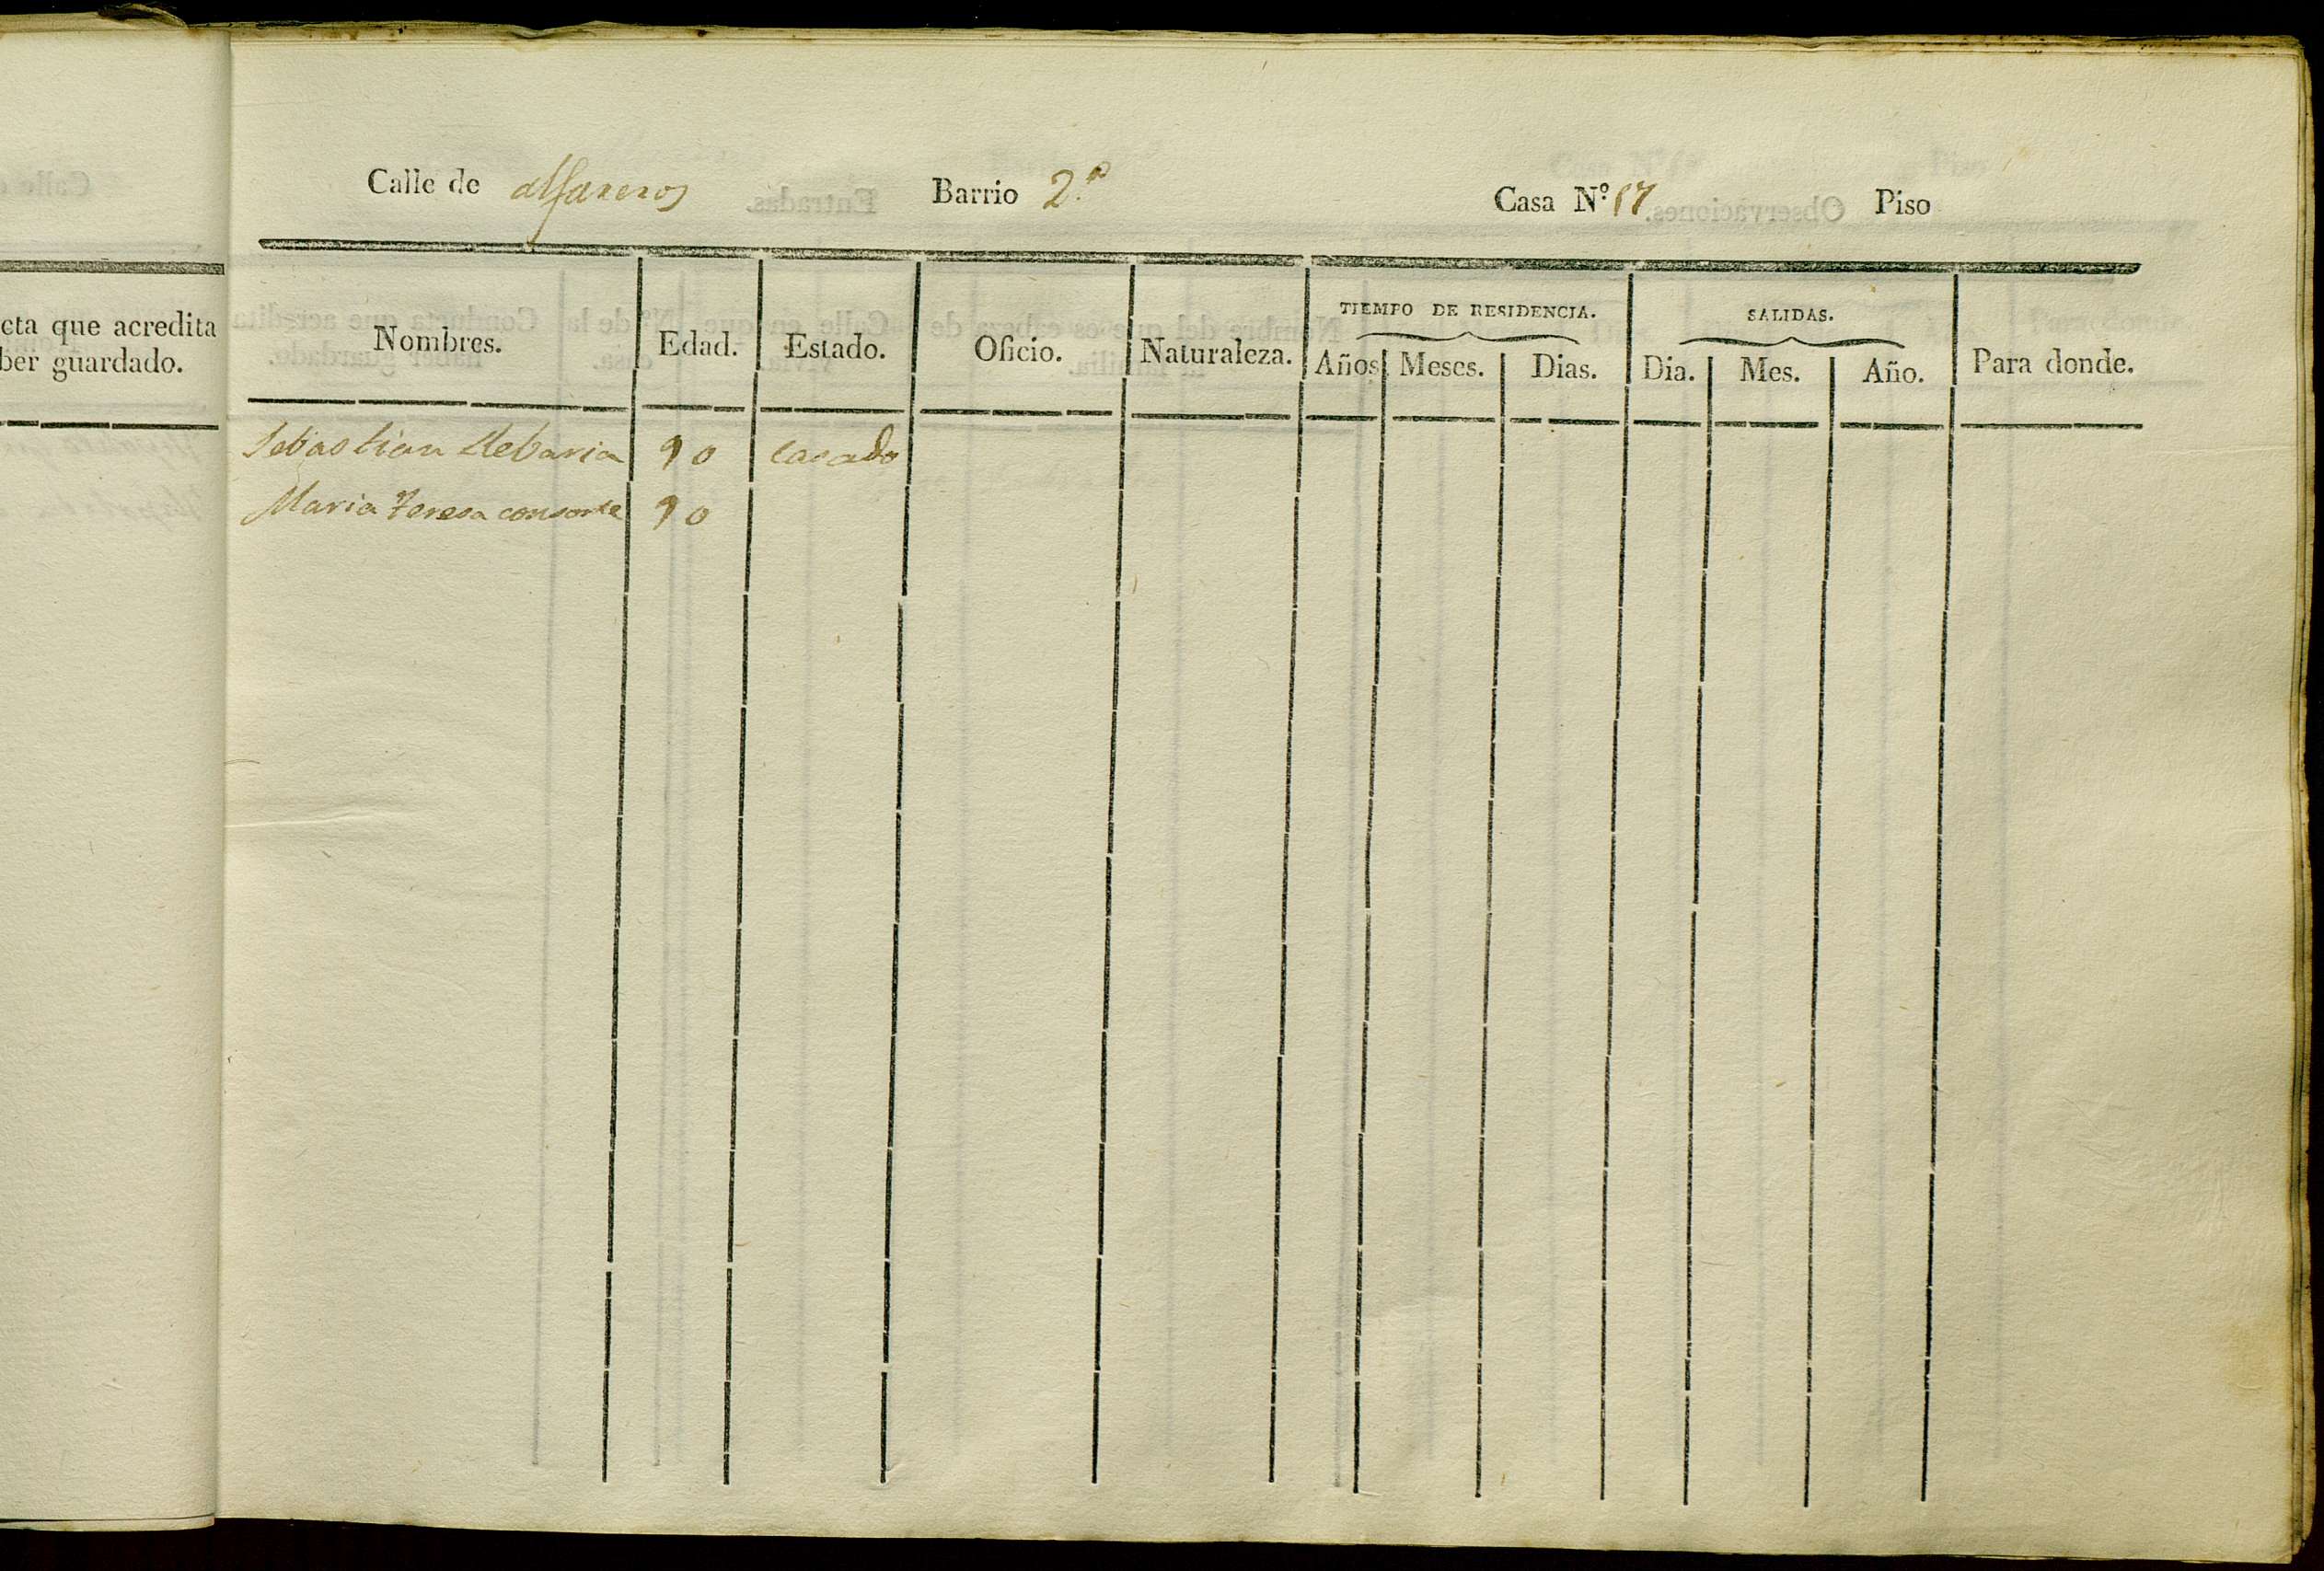 cta que acredita
ber guardado.
Calle de alfareros Barrio 2.º Casa N.º 17 Piso
Nombres. Edad. Estado. Oficio. Naturaleza. TIEMPO DE RESIDENCIA. SALIDAS. Para donde.
Años. Meses. Dias. Dia. Mes. Año.
Sebastian Llebaria 90 casado
Maria Teresa consorte 90